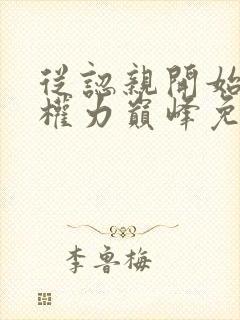 從認親開始
權力巔峰免
李魯梅